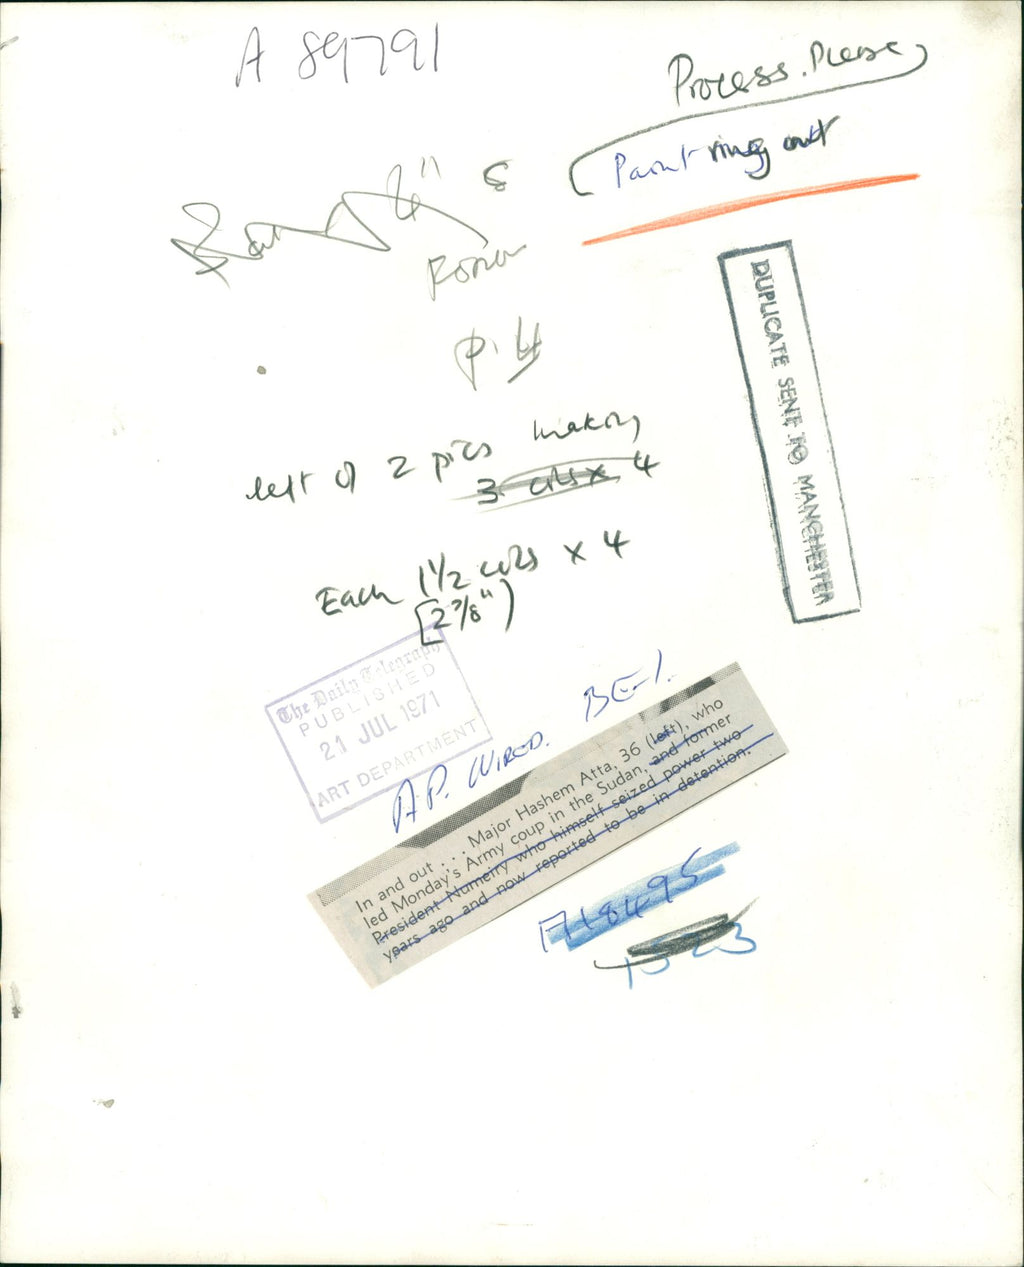 A 89791
Process. Please
Paint ring out
4" s
p. 4
left of 2 pics making
3 cols x 4
Each 1½ cols x 4
[2 7/8"]
DUPLICATE SENT TO MANCHESTER
The Daily Telegraph
PUBLISHED
21 JUL 1971
ART DEPARTMENT
A.P. WIRED.
In and out . . . Major Hashem Atta, 36 (left), who
led Monday's Army coup in the Sudan, and former
President Numeiry who himself seized power two
years ago and now reported to be in detention.
A18495